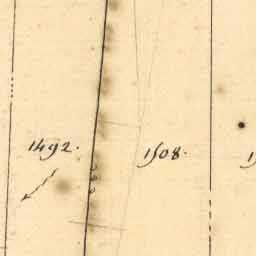 1492.
1508.